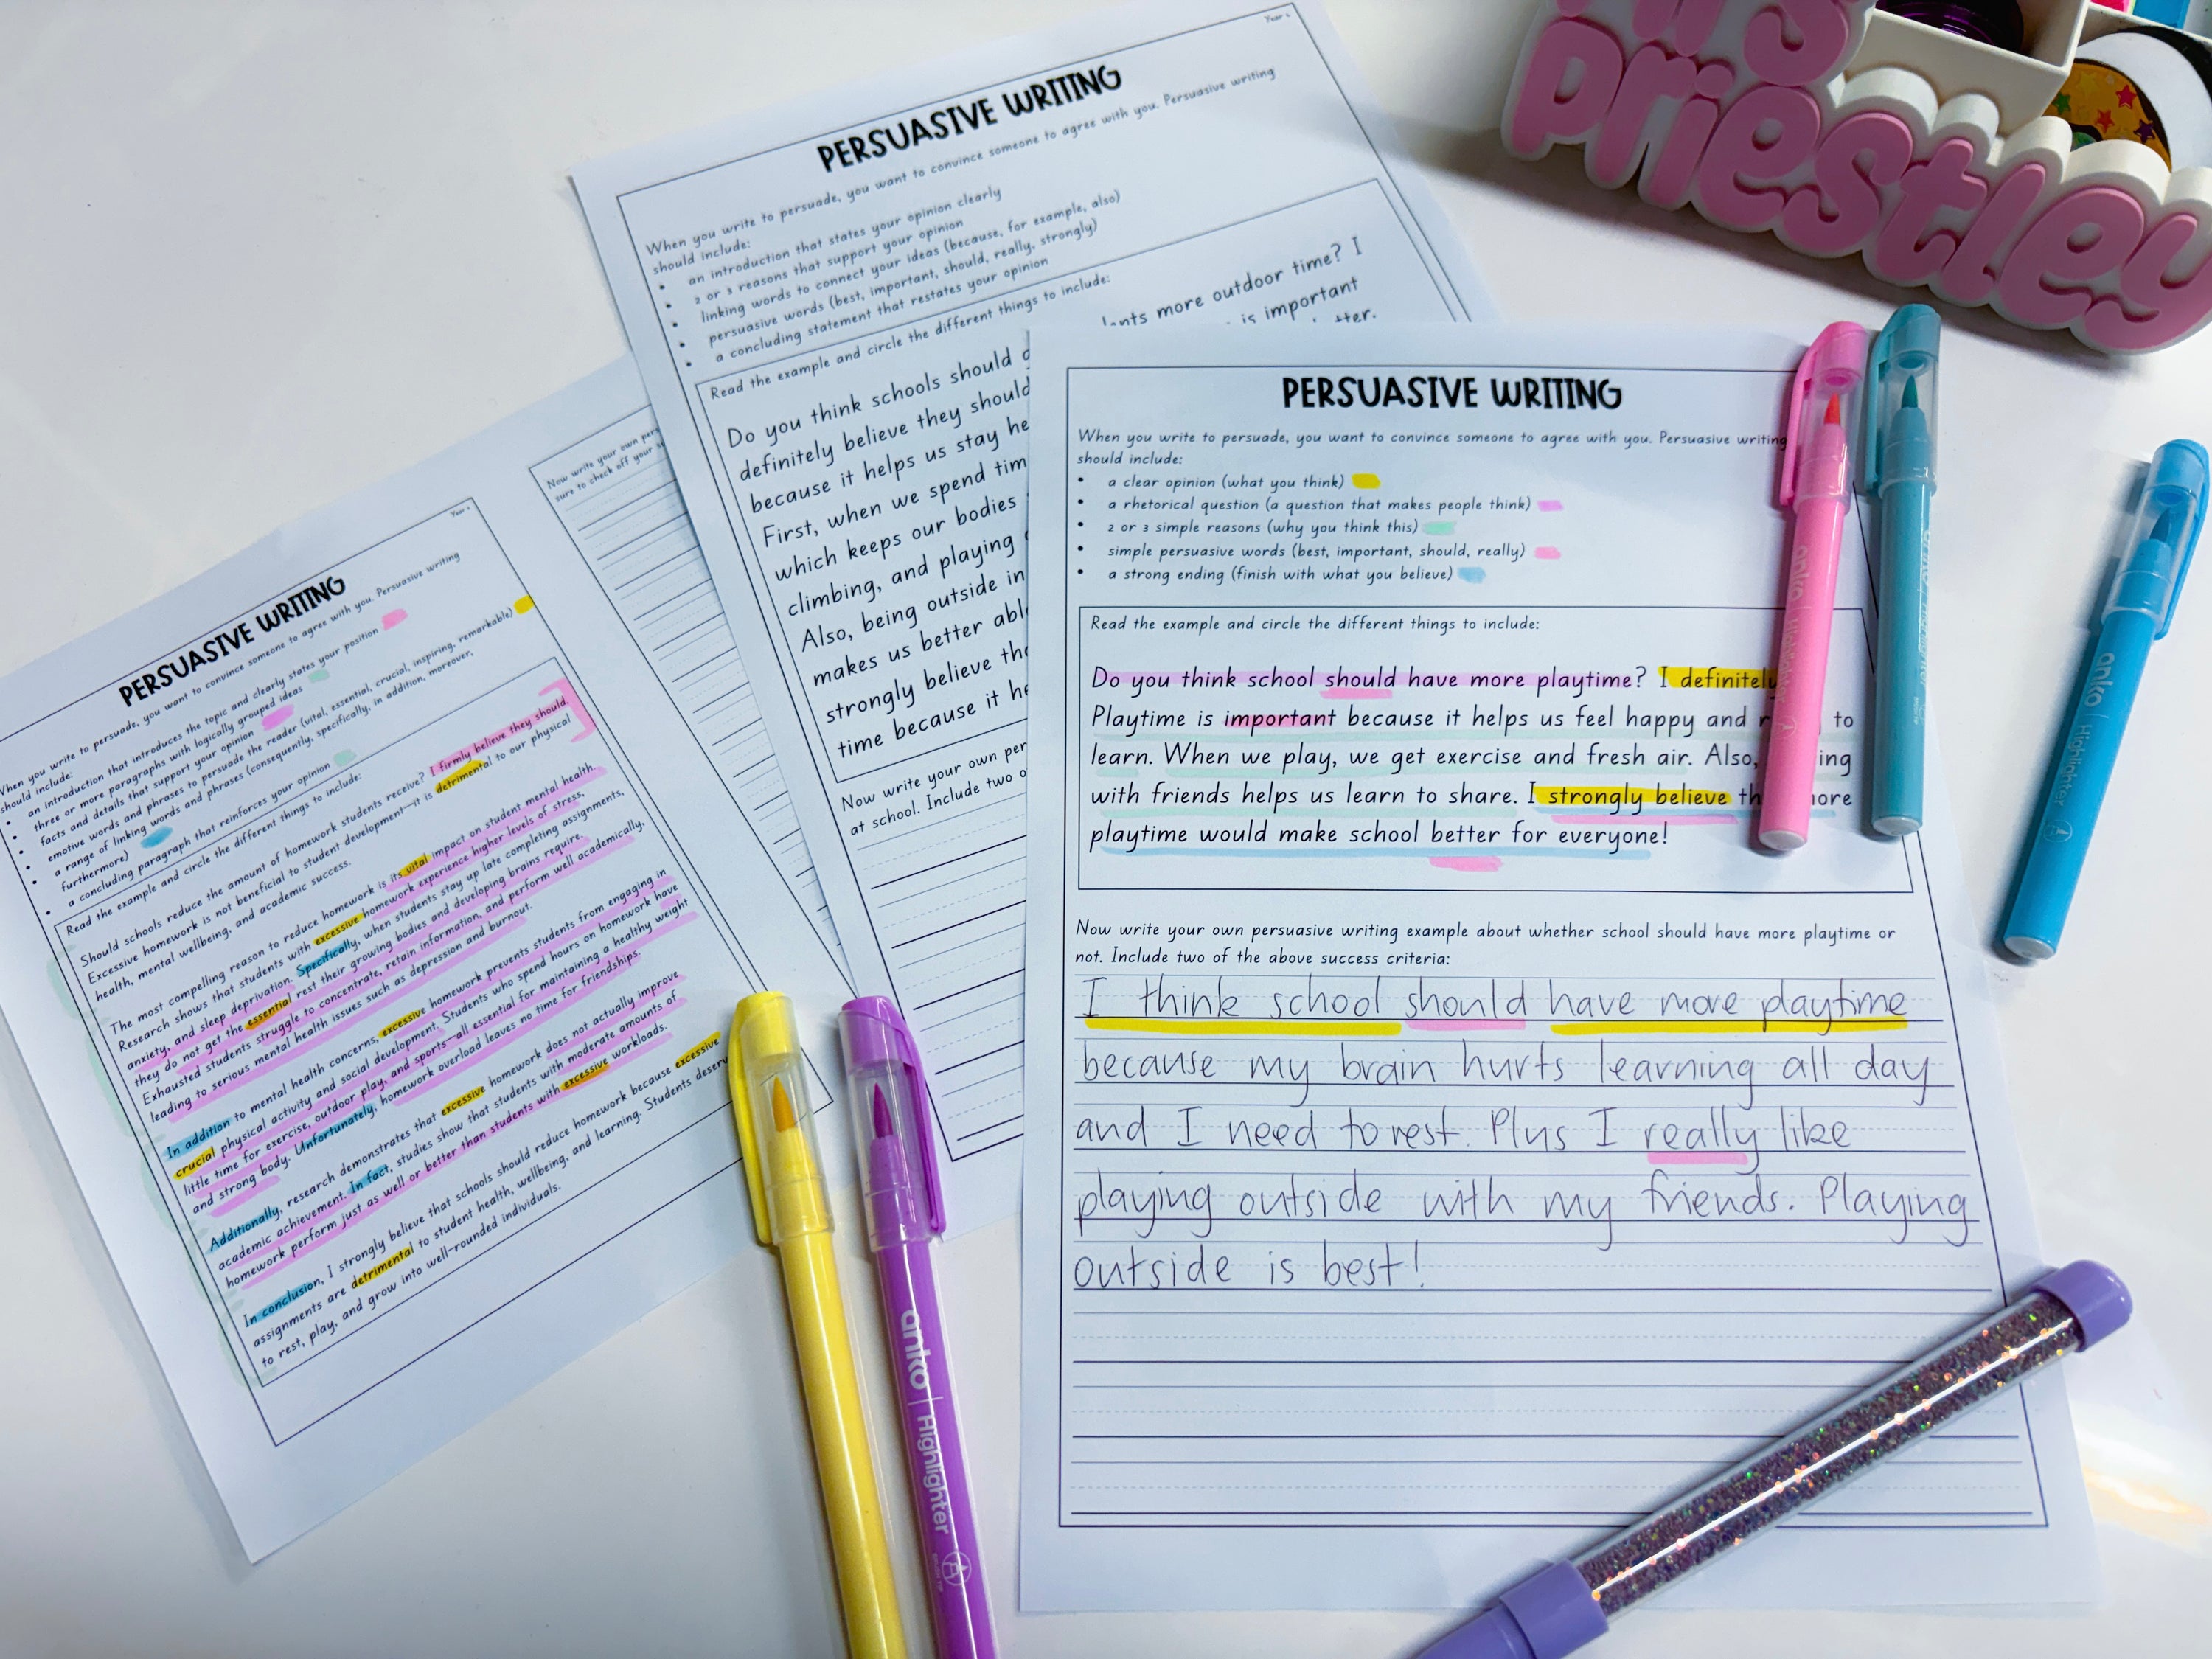 PERSUASIVE WRITING
When you write to persuade, you want to convince someone to agree with you. Persuasive writing
should include:
• an introduction that introduces the topic and clearly states your position
• three or more paragraphs with logically grouped ideas
• facts and details that support your opinion
• emotive words and phrases to persuade the reader (vital, essential, crucial, inspiring, remarkable)
• a range of linking words and phrases (consequently, specifically, in addition, moreover,
furthermore)
• a concluding paragraph that reinforces your opinion
Read the example and circle the different things to include:
Should schools reduce the amount of homework students receive? I firmly believe they should.
Excessive homework is not beneficial to student development—it is detrimental to our physical
health, mental wellbeing, and academic success.
The most compelling reason to reduce homework is its vital impact on student mental health.
Research shows that students with excessive homework experience higher levels of stress,
anxiety, and sleep deprivation. Specifically, when students stay up late completing assignments,
they do not get the essential rest their growing bodies and developing brains require.
Exhausted students struggle to concentrate, retain information, and perform well academically,
leading to serious mental health issues such as depression and burnout.
In addition to mental health concerns, excessive homework prevents students from engaging in
crucial physical activity and social development. Students who spend hours on homework have
little time for exercise, outdoor play, and sports—all essential for maintaining a healthy weight
and strong body. Unfortunately, homework overload leaves no time for friendships.
Additionally, research demonstrates that excessive homework does not actually improve
academic achievement. In fact, studies show that students with moderate amounts of
homework perform just as well or better than students with excessive workloads.
In conclusion, I strongly believe that schools should reduce homework because excessive
assignments are detrimental to student health, wellbeing, and learning. Students deserv
to rest, play, and grow into well-rounded individuals.
Now write your own per
sure to check off your
PERSUASIVE WRITING
When you write to persuade, you want to convince someone to agree with you. Persuasive writing
should include:
• an introduction that states your opinion clearly
• 2 or 3 reasons that support your opinion
• linking words to connect your ideas (because, for example, also)
• persuasive words (best, important, should, really, strongly)
• a concluding statement that restates your opinion
Read the example and circle the different things to include:
Do you think schools should g ents more outdoor time? I
definitely believe they should is important
because it helps us stay he tter.
First, when we spend tim
which keeps our bodies
climbing, and playing
Also, being outside in
makes us better abl
strongly believe tha
time because it he
Now write your own per
at school. Include two o
PERSUASIVE WRITING
When you write to persuade, you want to convince someone to agree with you. Persuasive writing
should include:
• a clear opinion (what you think)
• a rhetorical question (a question that makes people think)
• 2 or 3 simple reasons (why you think this)
• simple persuasive words (best, important, should, really)
• a strong ending (finish with what you believe)
Read the example and circle the different things to include:
Do you think school should have more playtime? I definitely
Playtime is important because it helps us feel happy and r to
learn. When we play, we get exercise and fresh air. Also, ing
with friends helps us learn to share. I strongly believe th more
playtime would make school better for everyone!
Now write your own persuasive writing example about whether school should have more playtime or
not. Include two of the above success criteria:
I think school should have more playtime
because my brain hurts learning all day
and I need to rest. Plus I really like
playing outside with my friends. Playing
outside is best!
Mrs
Priestley
anko | Highlighter
anko | Highlighter
anko | Highlighter